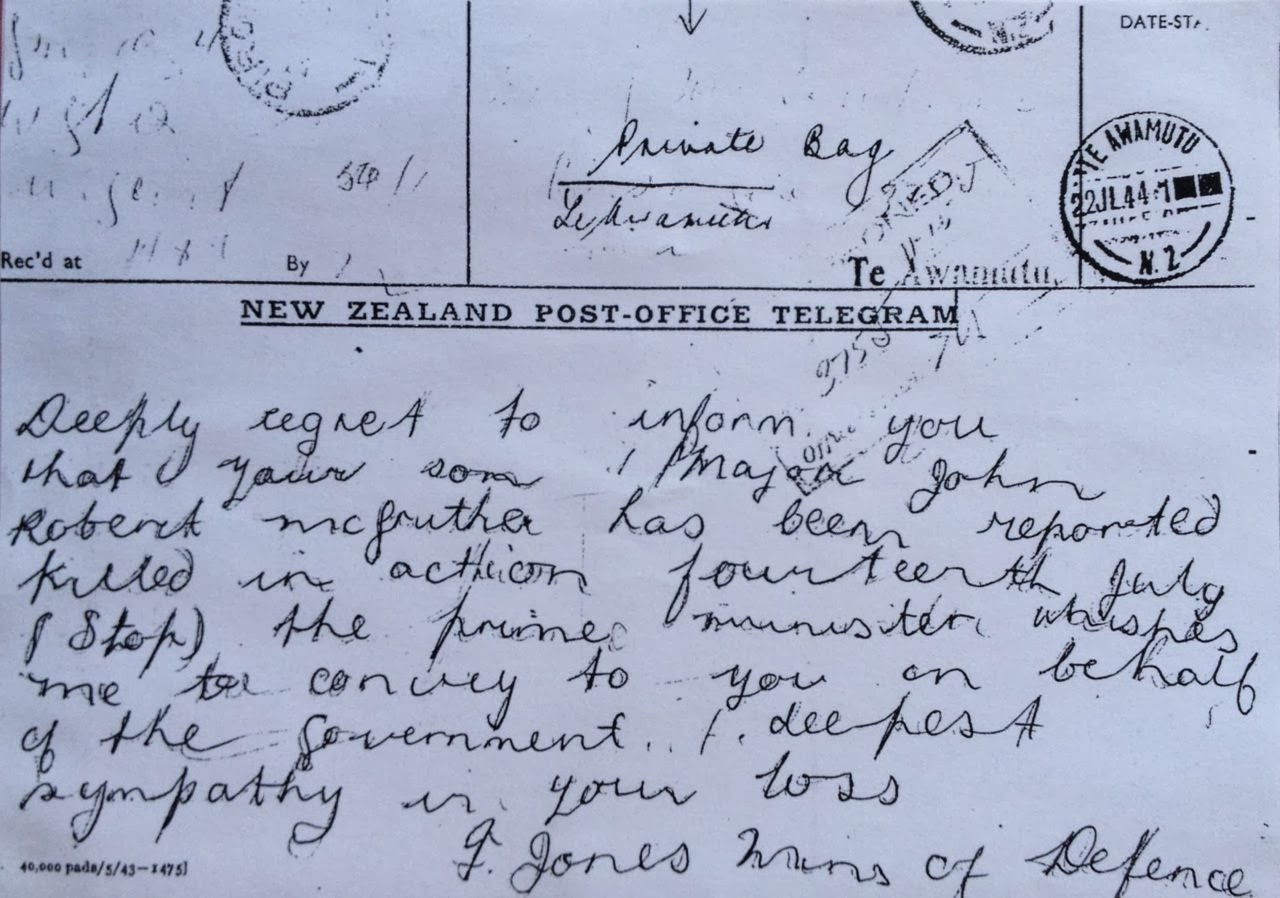 DATE-STA
Private Bag
Te Awamutu
TE AWAMUTU
22 JL 44
N.Z
N.Z
urgent
Rec'd at By
Te Awamutu
NEW ZEALAND POST-OFFICE TELEGRAM
Deeply regret to inform you
that your son / Major John
Robert mcgruther has been reported
killed in action fourteenth July
(Stop) the prime minister whishes
me to convey to you on behalf
of the government. / . deepest
sympathy in your loss
F. Jones Mins of Defence
40,000 pads/5/43-1475]